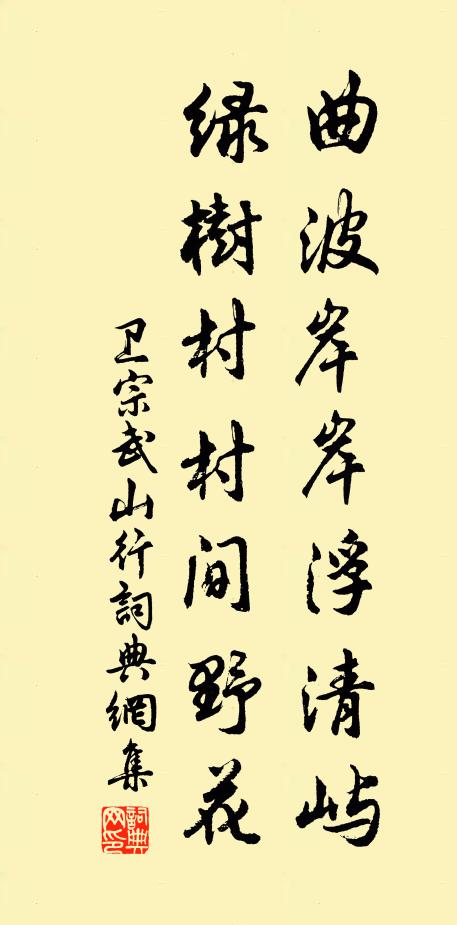 曲波岸岸浮清屿
绿樹村村间野花
卫宗武山行詞典網集
詞典网印